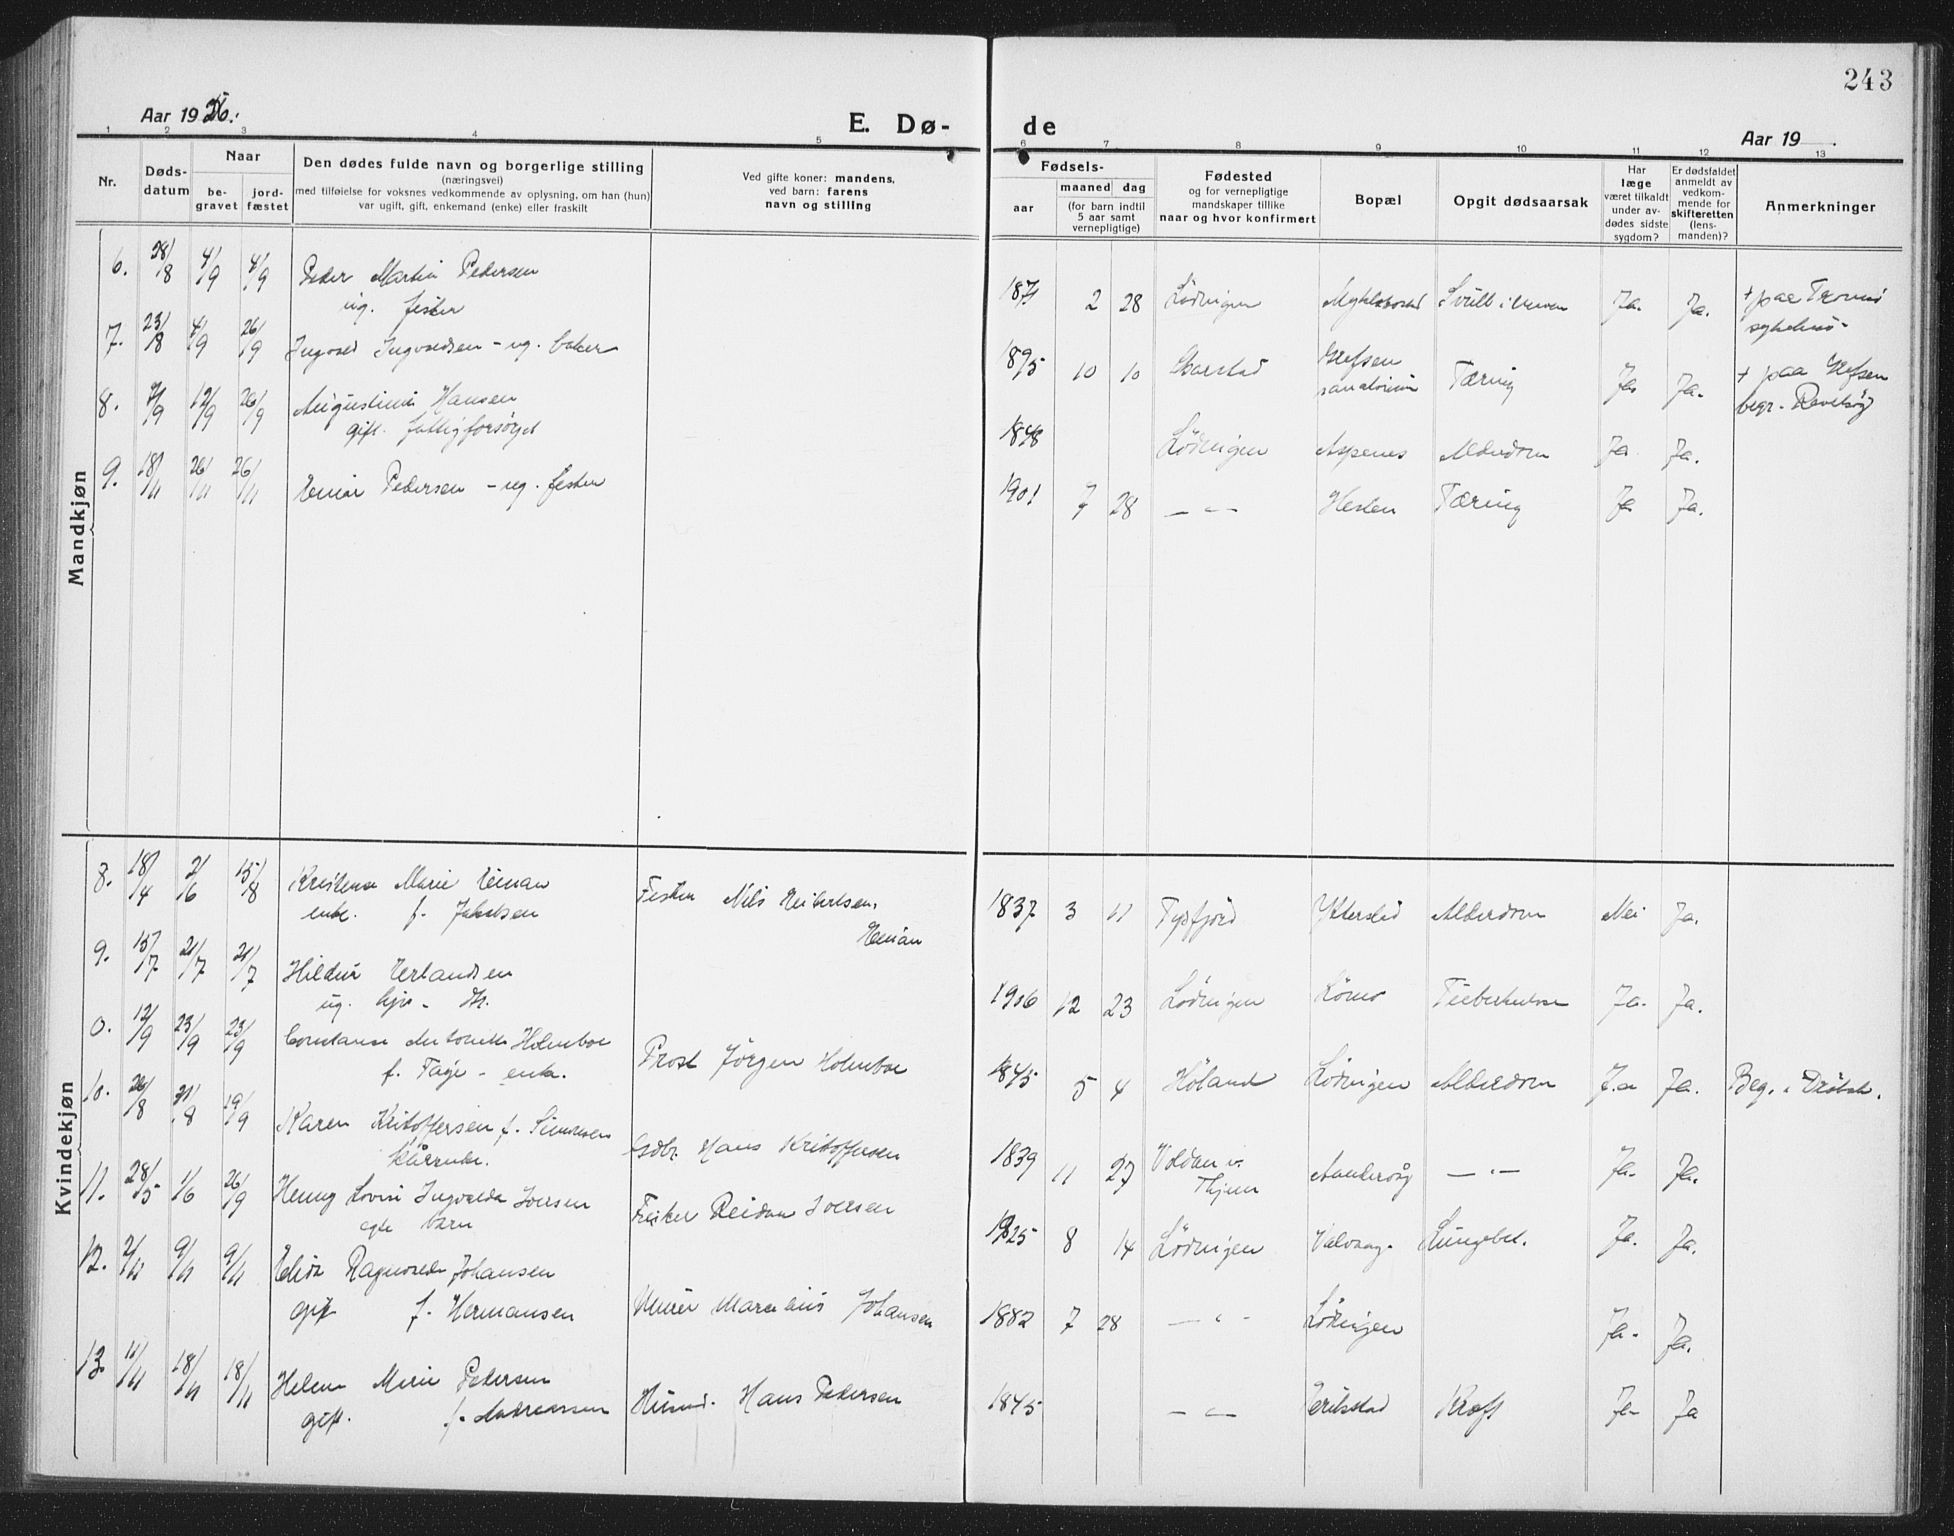 243
Aar 1926.
E. Dø-
de
Aar 19
1 2 3 4 5 6 7 8 9 10 11 12 13
Nr.
Døds-
datum
Naar
be-
gravet
jord-
fæstet
Den dødes fulde navn og borgerlige stilling
(næringsvei)
med tilføielse for voksnes vedkommende av oplysning, om han (hun)
var ugift, gift, enkemand (enke) eller fraskilt
Ved gifte koner: mandens,
ved barn: farens
navn og stilling
Fødsels-
aar
maaned dag
(for barn indtil
5 aar samt
vernepligtige)
Fødested
og for vernepligtige
mandskaper tillike
naar og hvor konfirmert
Bopæl
Opgit dødsaarsak
Har
læge
været tilkaldt
under av-
dødes sidste
sygdom?
Er dødsfaldet
anmeldt av
vedkom-
mende for
skifteretten
(lens-
manden)?
Anmerkninger
Mandkjøn
6. 28/8 4/9 4/9 Peder Martin Pedersen
ug. fisker
1871 2 28 Lødingen Svulst i Ja. Ja. + paa Tromsø
7. 23/8 4/9 26/9 Ingvald Ingvaldsen - ug. baker
1895 10 10 Skarstad Grefsen
sanatorium Tæring Ja Ja. + paa Grefsen
begr.
8. 7/9 12/9 26/9 Augustinus Hansen
gift. fattigforsørget
1848 Lødingen Aspenes Alderdom Ja Ja.
9. 18/11 26/11 26/11 Einar Pedersen - ug. fisker
1901 7 28 — " — Hesten Tæring Ja Ja.
Kvindekjøn
8. 18/4 2/6 15/8 Kristense Marie Heinan
enke. f. Jakobsen
Fisker Nils Heibertsen.
Heinan
1837 3 11 Tysfjord Ytterstad Alderdom Nei Ja.
9. 15/7 21/7 21/7 Hildur Erlandsen
ug. hjv. - dtr.
1906 12 23 Lødingen Tuberkulose Ja. Ja.
0. 12/9 23/9 23/9 Constanse Antonette Holmboe
f. Faye - enke.
Prost Jørgen Holmboe
1845 5 4 Høland Lødingen Alderdom Ja Ja. Beg. i Drøbak.
10. 26/8 31/8 19/9 Karen Kristoffersen f. Simonsen
kårenke.
Gdbr. Hans Kristoffersen
1839 11 27 Voldan v.
— " — Ja. Ja.
11. 28/5 1/6 26/9 Henny Lovise Ingvalda Iversen
egte barn
Fisker Reidar Iversen
1925 8 14 Lødingen Lungebet. Ja. Ja.
12. 2/11 9/11 9/11 Elida Ragnvalda Johansen
gift f. Hermansen
Murer Marelius Johansen
1882 7 28 — " — Lødingen Ja. Ja.
13. 11/11 18/11 18/11 Helene Marie Pedersen
gift. f. Andreassen
Husmd. Hans Pedersen
1845 — " — Erikstad Kræft Ja Ja